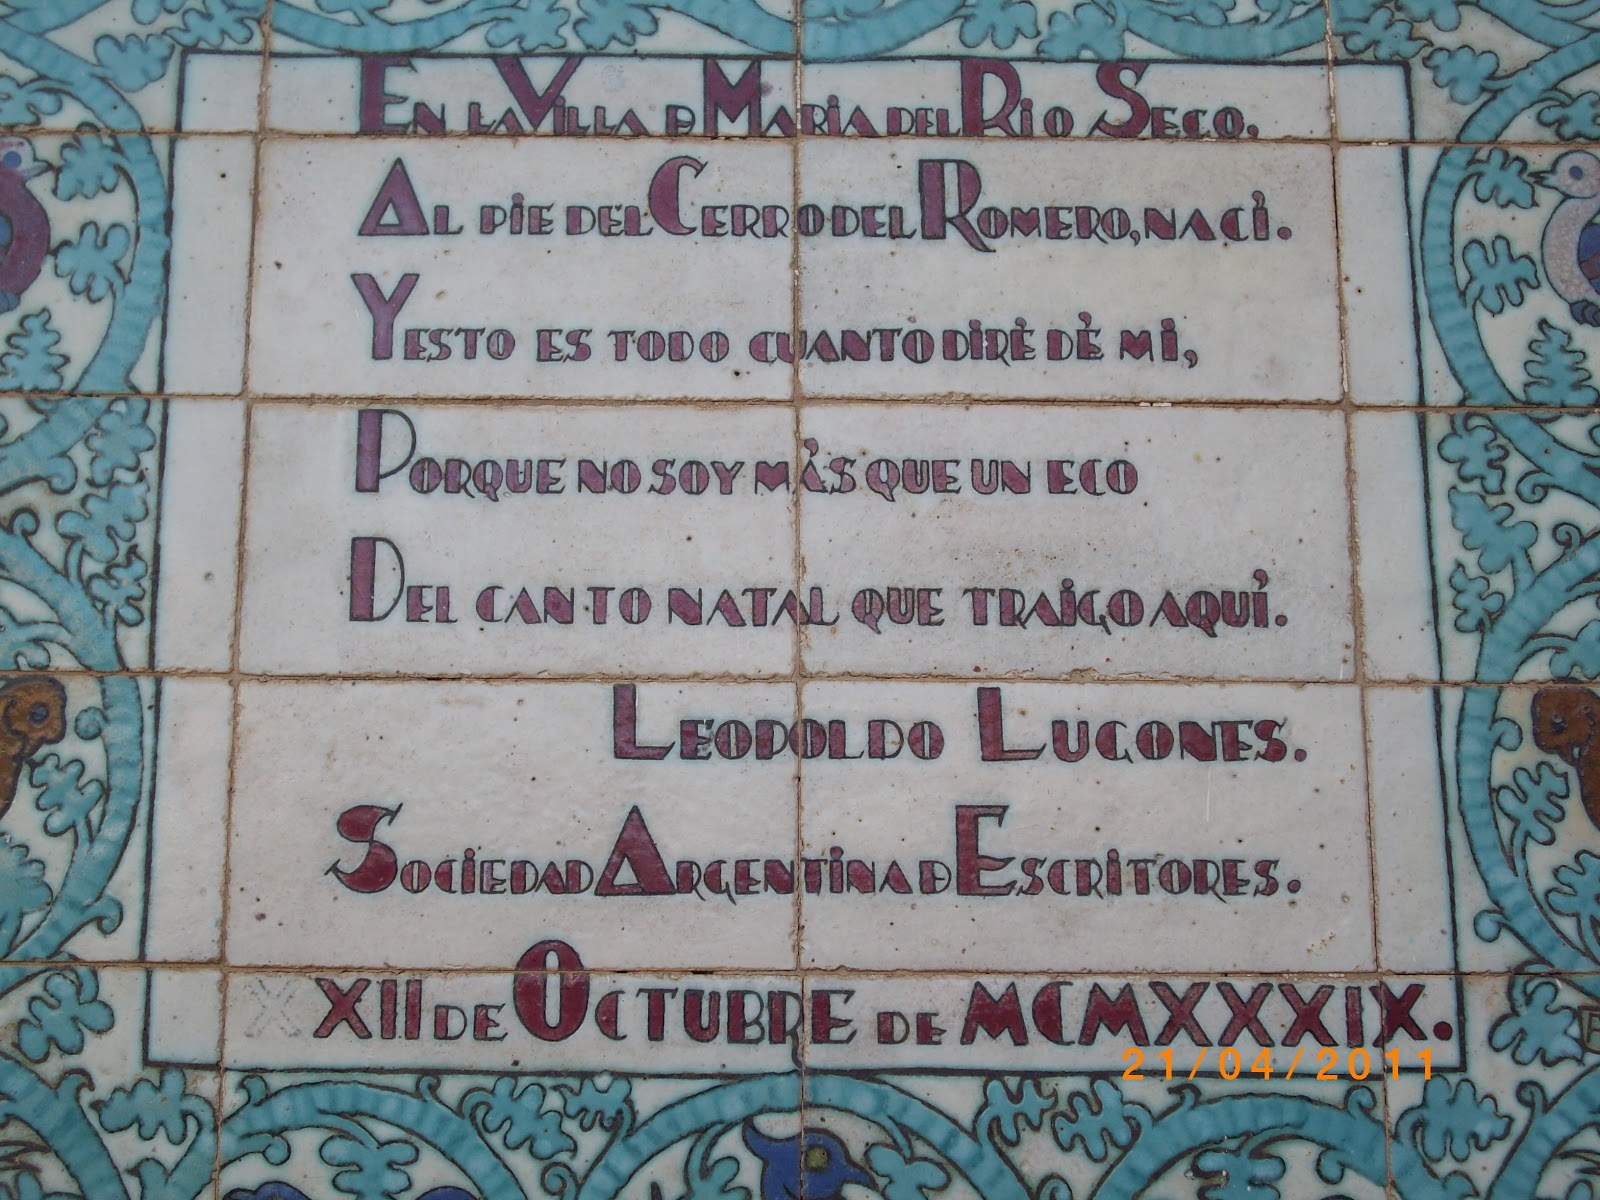 En la Villa D Maria del Rio Seco.
Al pie del Cerro del Romero, nací.
Y esto es todo cuanto diré dé mi,
Porque no soy más que un eco
Del canto natal que traigo aquí.
Leopoldo Lugones.
Sociedad Argentina D Escritores.
XXII de Octubre de MCMXXXIX.
21/04/2011